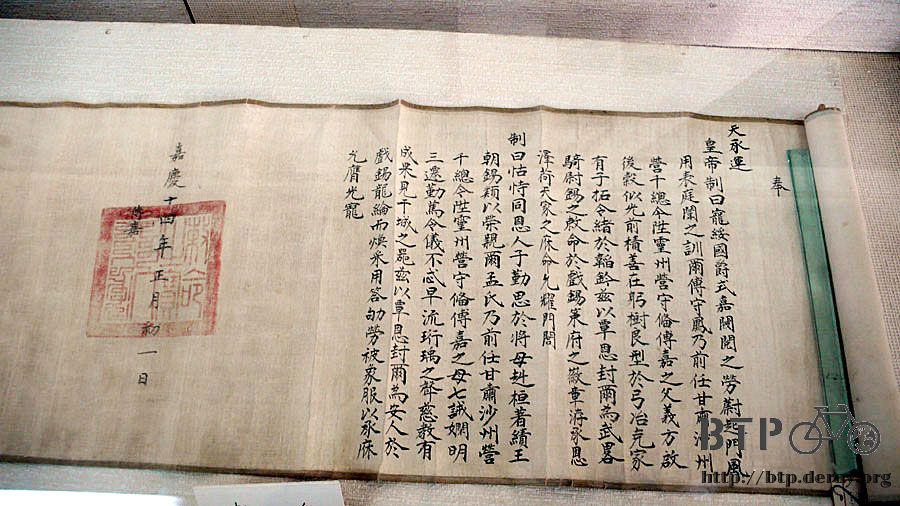 奉
天承運
皇帝制曰寵綏國爵式嘉閥閱之勞蔚起門風
用表庭闈之訓爾傅守鳳乃前任甘肅沙州
營千總今陞靈州營守俻傅嘉之父義方啟
後穀似光前積善在躬樹良型於弓冶克家
有子拓令緒於韜鈐兹以覃恩封爾為武畧
騎尉錫之敕命於戲錫策府之徽章洊承恩
澤荷天家之庥命允耀門閭
制曰怙恃同恩人子勤思於將母赳桓著績王
朝錫類以榮親爾孟氏乃前任甘肅沙州營
千總今陞靈州營守俻傅嘉之母七誡嫻明
三遷勤篤令儀不忒早流珩瑀之聲慈教有
成果見干城之噐兹以覃恩封爾為安人於
戲錫龍綸而煥采用答劬勞被象服以承庥
允膺光寵
嘉慶十四年正月初一日
傅嘉
BTP
http://btp.demy.org